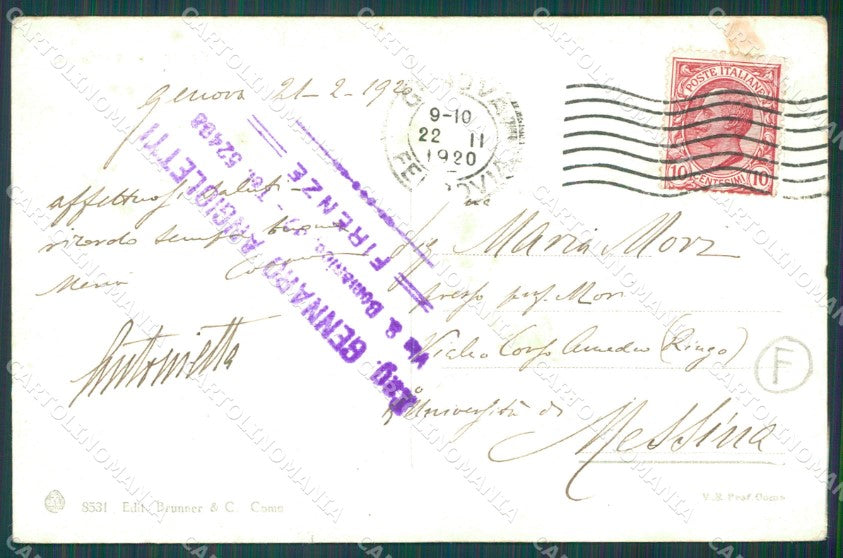 Genova 21-2-1920
affettuosi saluti
ricordo sempre
Maria
Antonietta
Rag. GENNARO ANGIOLETTI
Via S. Domenico, - Tel. 52498
FIRENZE
GENOVA
9-10
22 II
1920
FERROVIA
POSTE ITALIANE
10 CENTESIMI 10
Sig. Maria Mori
presso prof. Mori
Viale Corso Amedeo (Ringo)
Università di
Messina
F
8531 Edit. Brunner & C. Como
V.R. Prof. Como
CARTOLINOMANIA